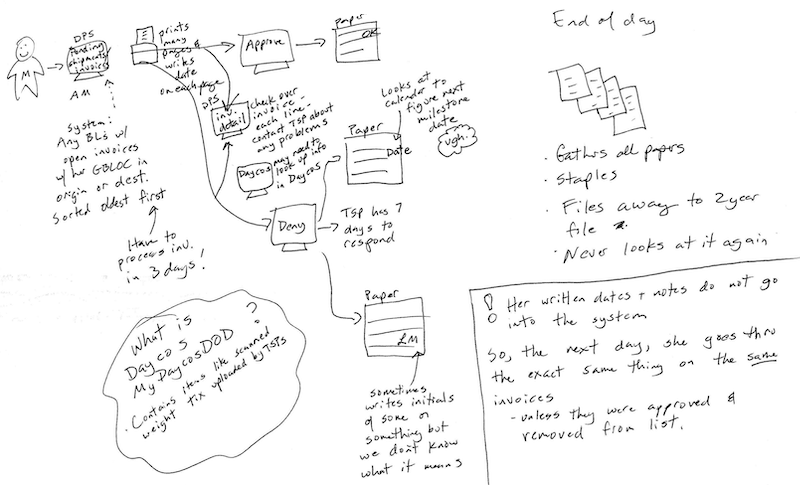 M
DPS
Pending
shipments/
invoices
AM
System:
Any BLs w/
open invoices
w/ her GBLOC in
origin or dest.
Sorted oldest first
Have to
process inv.
in 3 days!
prints
many
pages &
writes
date
on each page
DPS
inv.
detail
check over
invoice -
each line -
contact TSP about
any problems
Daycos
may need to
look up info
in Daycos
Approve
Paper
OK
Deny
TSP has 7
days to
respond
Paper
Date
Looks at
calendar to
figure next
milestone
date
ugh.
Paper
LM
sometimes
writes initials
of some or
something but
we don't know
what it means
What is
Daycos
MyDaycosDOD
?
· Contains items like scanned
weight tix uploaded by TSPs
End of day
· Gathers all papers
· Staples
· Files away to 2 year
file
· Never looks at it again
! Her written dates + notes do not go
into the system
So, the next day, she goes thru
the exact same thing on the same
invoices
- unless they were approved &
removed from list.